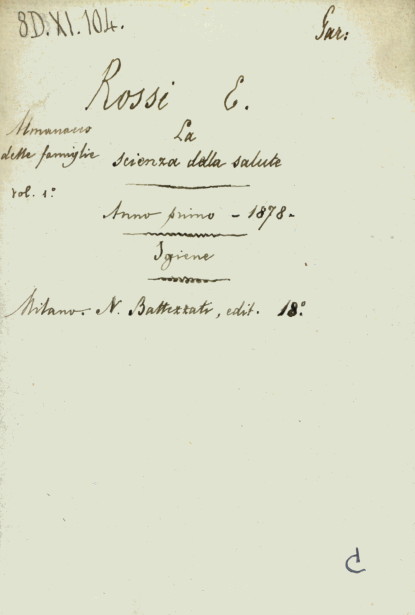 8D.XI.104.
Gar:
Rossi E.
Almanacco
delle famiglie
vol. 1°
La
scienza della salute
Anno primo - 1878 -
Igiene
Milano. N. Battezzati, edit. 18°
C